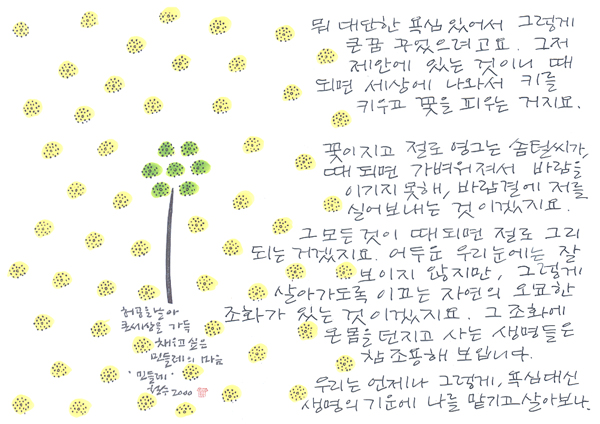 뭐 대단한 욕심 있어서 그렇게
큰꿈 꾸었으려고요. 그저
제안에 있는 것이니 때
되면 세상에 나와서 키를
키우고 꽃을 피우는 거지요.
꽃이지고 절로 영그는 솜털씨가,
때 되면 가벼워져서 바람을
이기지 못해, 바람결에 저를
실어보내는 것이겠지요.
그 모든것이 때되면 절로 그리
되는 거겠지요. 어두운 우리눈에는 잘
보이지 않지만, 그렇게
살아가도록 이끄는 자연의 오묘한
조화가 있는 것이겠지요. 그 조화에
큰 몸을 던지고 사는 생명들은
참 조용해 보입니다.
우리는 언제나 그렇게, 욕심대신
생명의 기운에 나를 맡기고 살아보나.
허공을 날아
큰세상을 가득
채우고 싶은
민들레의 마음
'민들레'
철수 2000